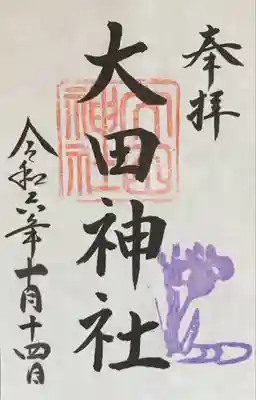 奉拝
大田神社
令和六年十月十四日